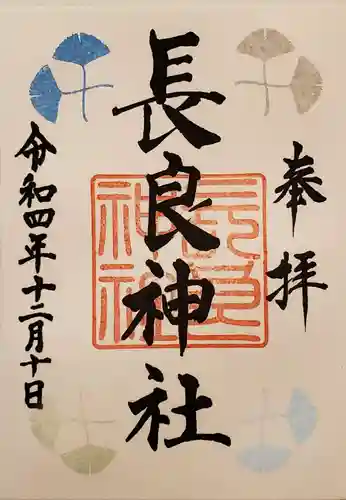 奉拝
長良神社
令和四年十二月十日
長良神社